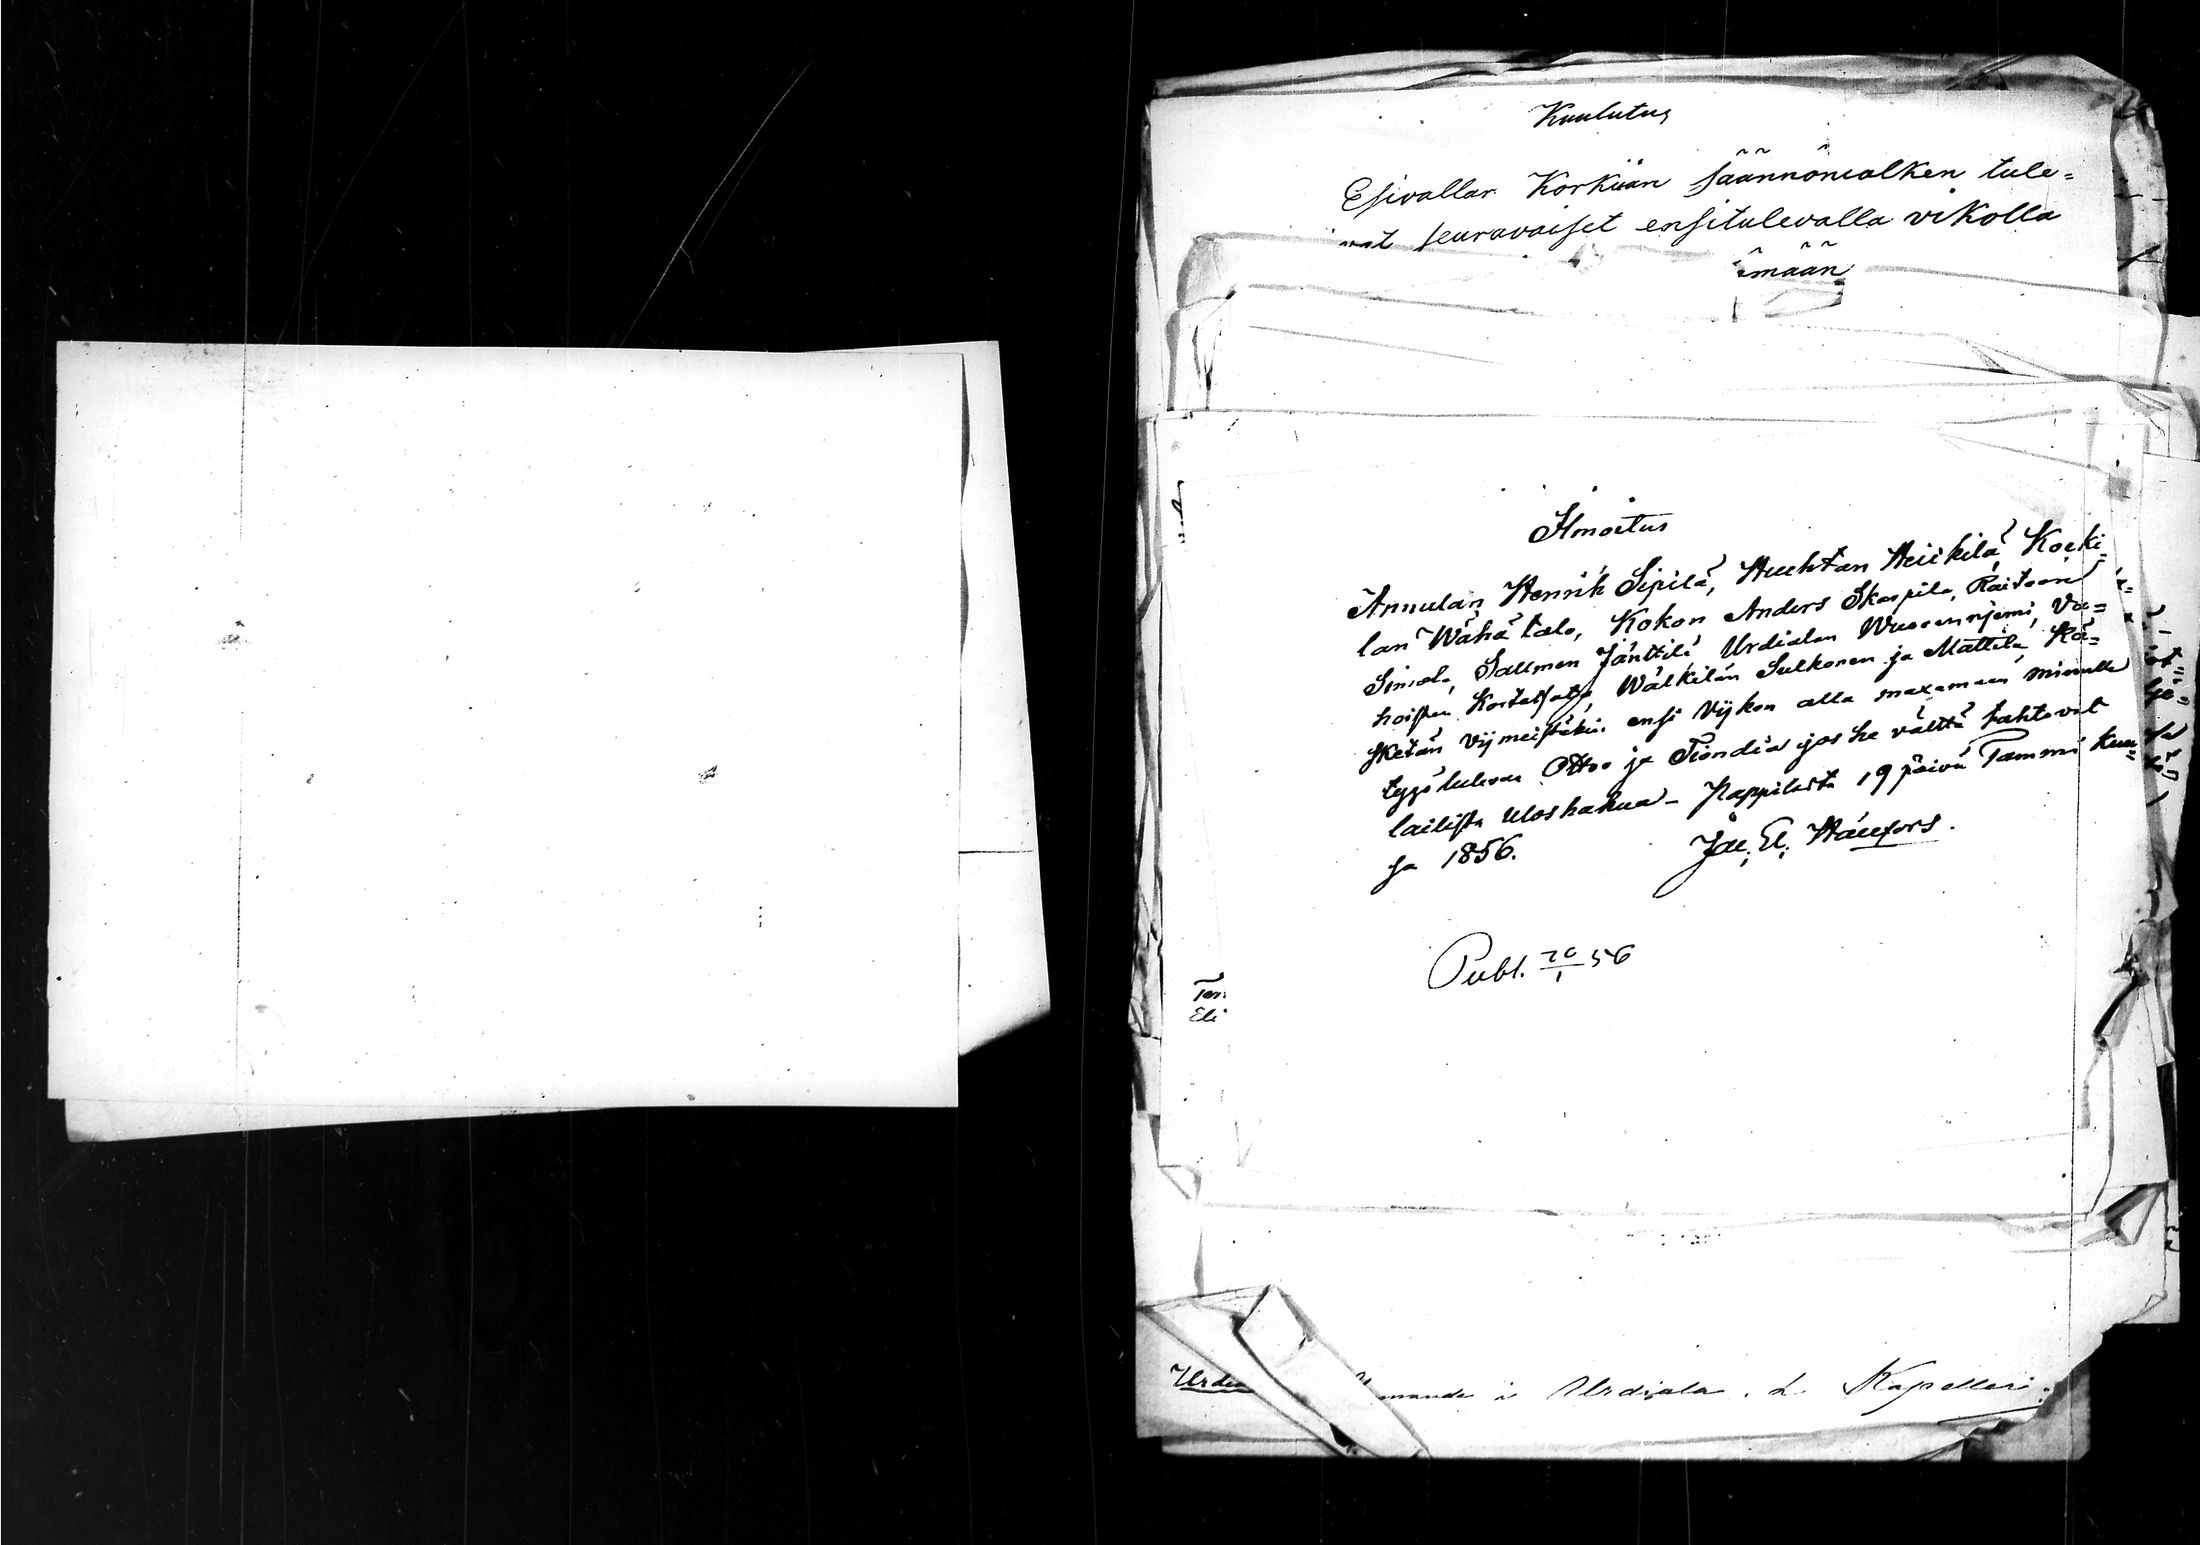 Kuulutus
Esivallan Korkiian säännönnalken tule=
vat seuravaiset ensitulevalla vikolla
mään
Ilmoitus
Annulan Henrik Sipilä, Huhtan Heickilä, Koski=
lan Wähä talo, Kokon Anders Skappila, Raitoon
Simola, Salmen Jänttilä Urdialan Wuorenniemi, Va=
hoisten Kortelseltä, Wälkilän Sulkonen ja Mattila Kä=
sketän viimeistäkin ensi Vijkon alla maxamaan minulle
tygötulevan Otton ja Tiondia jos he välttä tahtovat
laillista Uloshakua – Kappilasta 19 päivä Tammi kuu=
sa 1856.
Jac. El. Hällfors.
Publ. 20/1 56
Ter
Eli
Urdia
i Urdiala. L. Kapelleri.